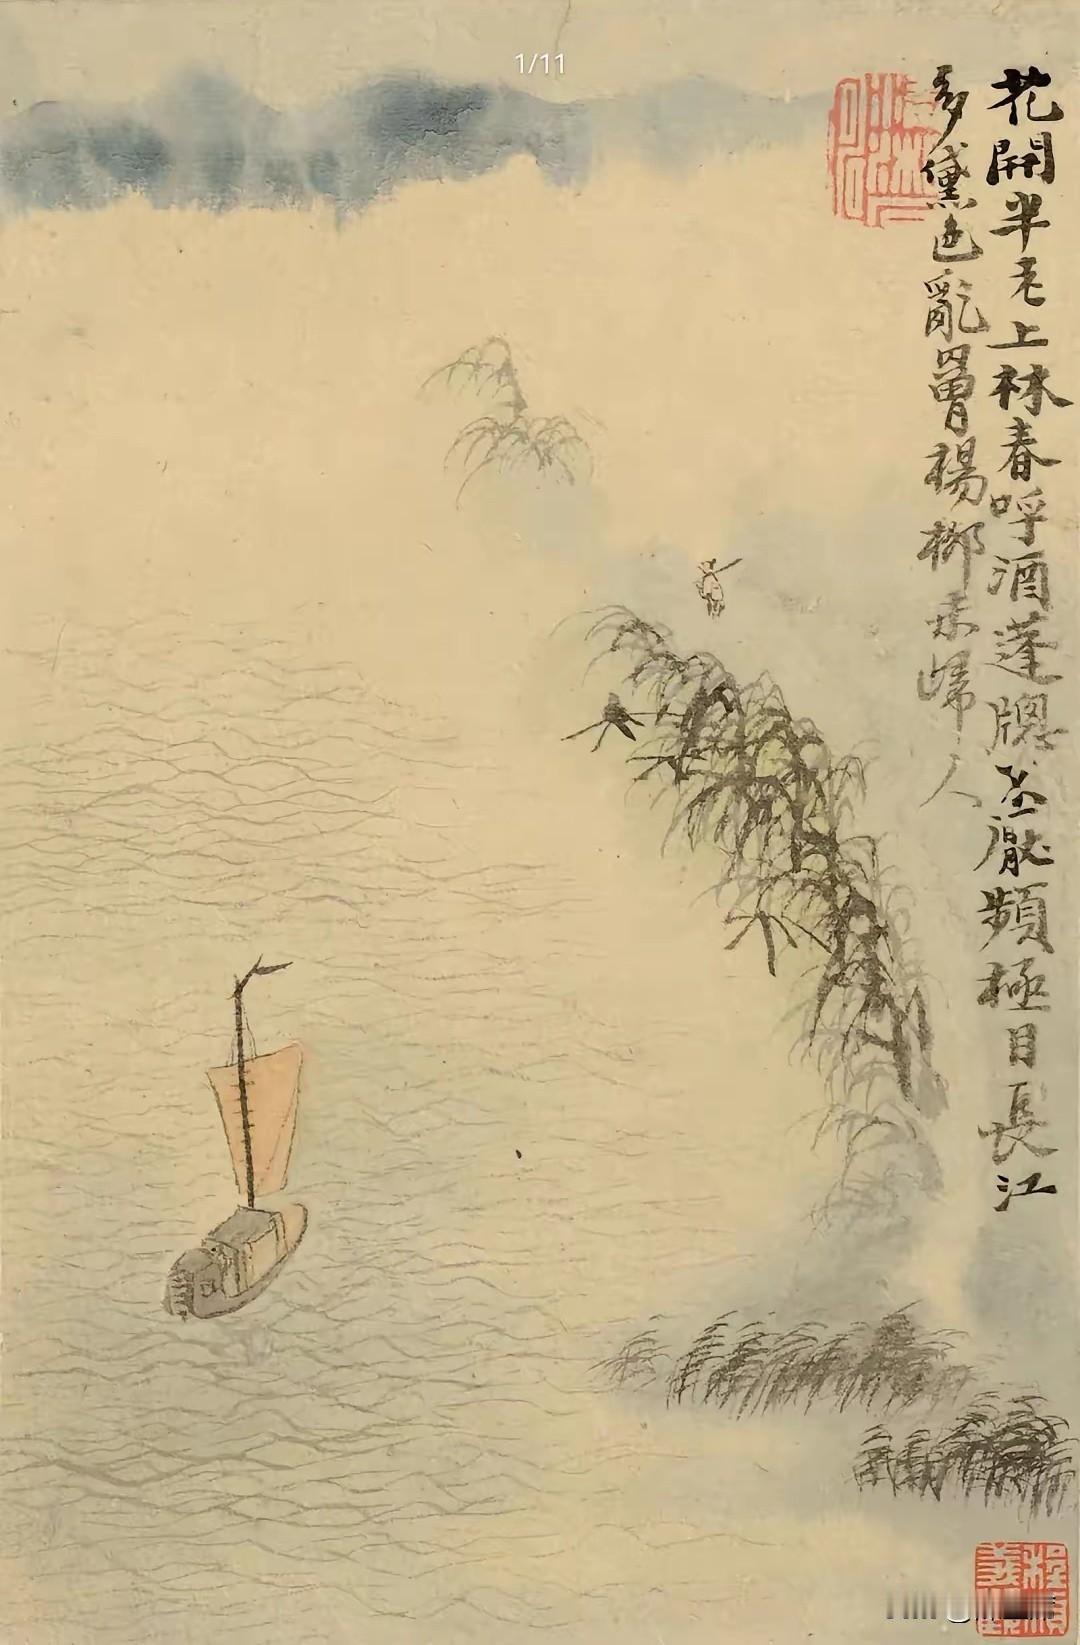 1/11
花開半老上林春呼酒蓬牕不厭頻極目長江
多黛色亂罾楊柳未歸人